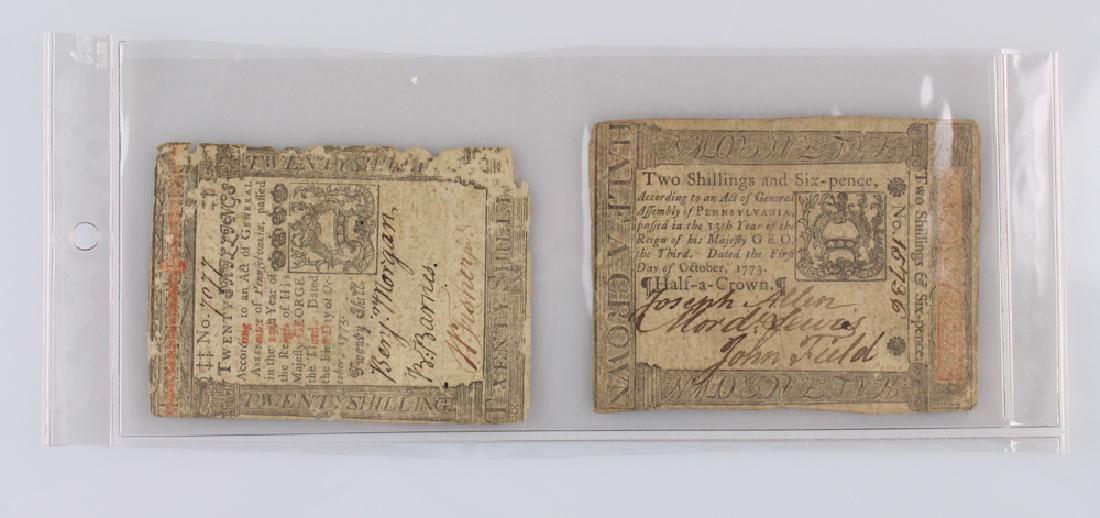 TWENTY SHILLING
No. 7077
TWENTY SHILLINGS
According to an Act of GENERAL
ASSEMBLY of Pennsylvania, passed
in the 13th Year of
the Reign of His
Majesty GEORGE
the Third. Dated
the First Day of Oc-
tober, 1773.
Twenty Shill.
Benj. Morgan
B: Barns.
TWENTY SHILLING
TWENTY SHILLING
HALF A CROWN
HALF A CROWN
Two Shillings and Six-pence,
According to an Act of General
Assembly of PENNSYLVANIA,
passed in the 13th Year of the
Reign of his Majesty GEO.
the Third. Dated the First
Day of October, 1773.
¶Half-a-Crown.¶
Joseph Allen
Mord. Lewis
John Field
No. 16736
Two Shillings & Six-pence
HALF A CROWN